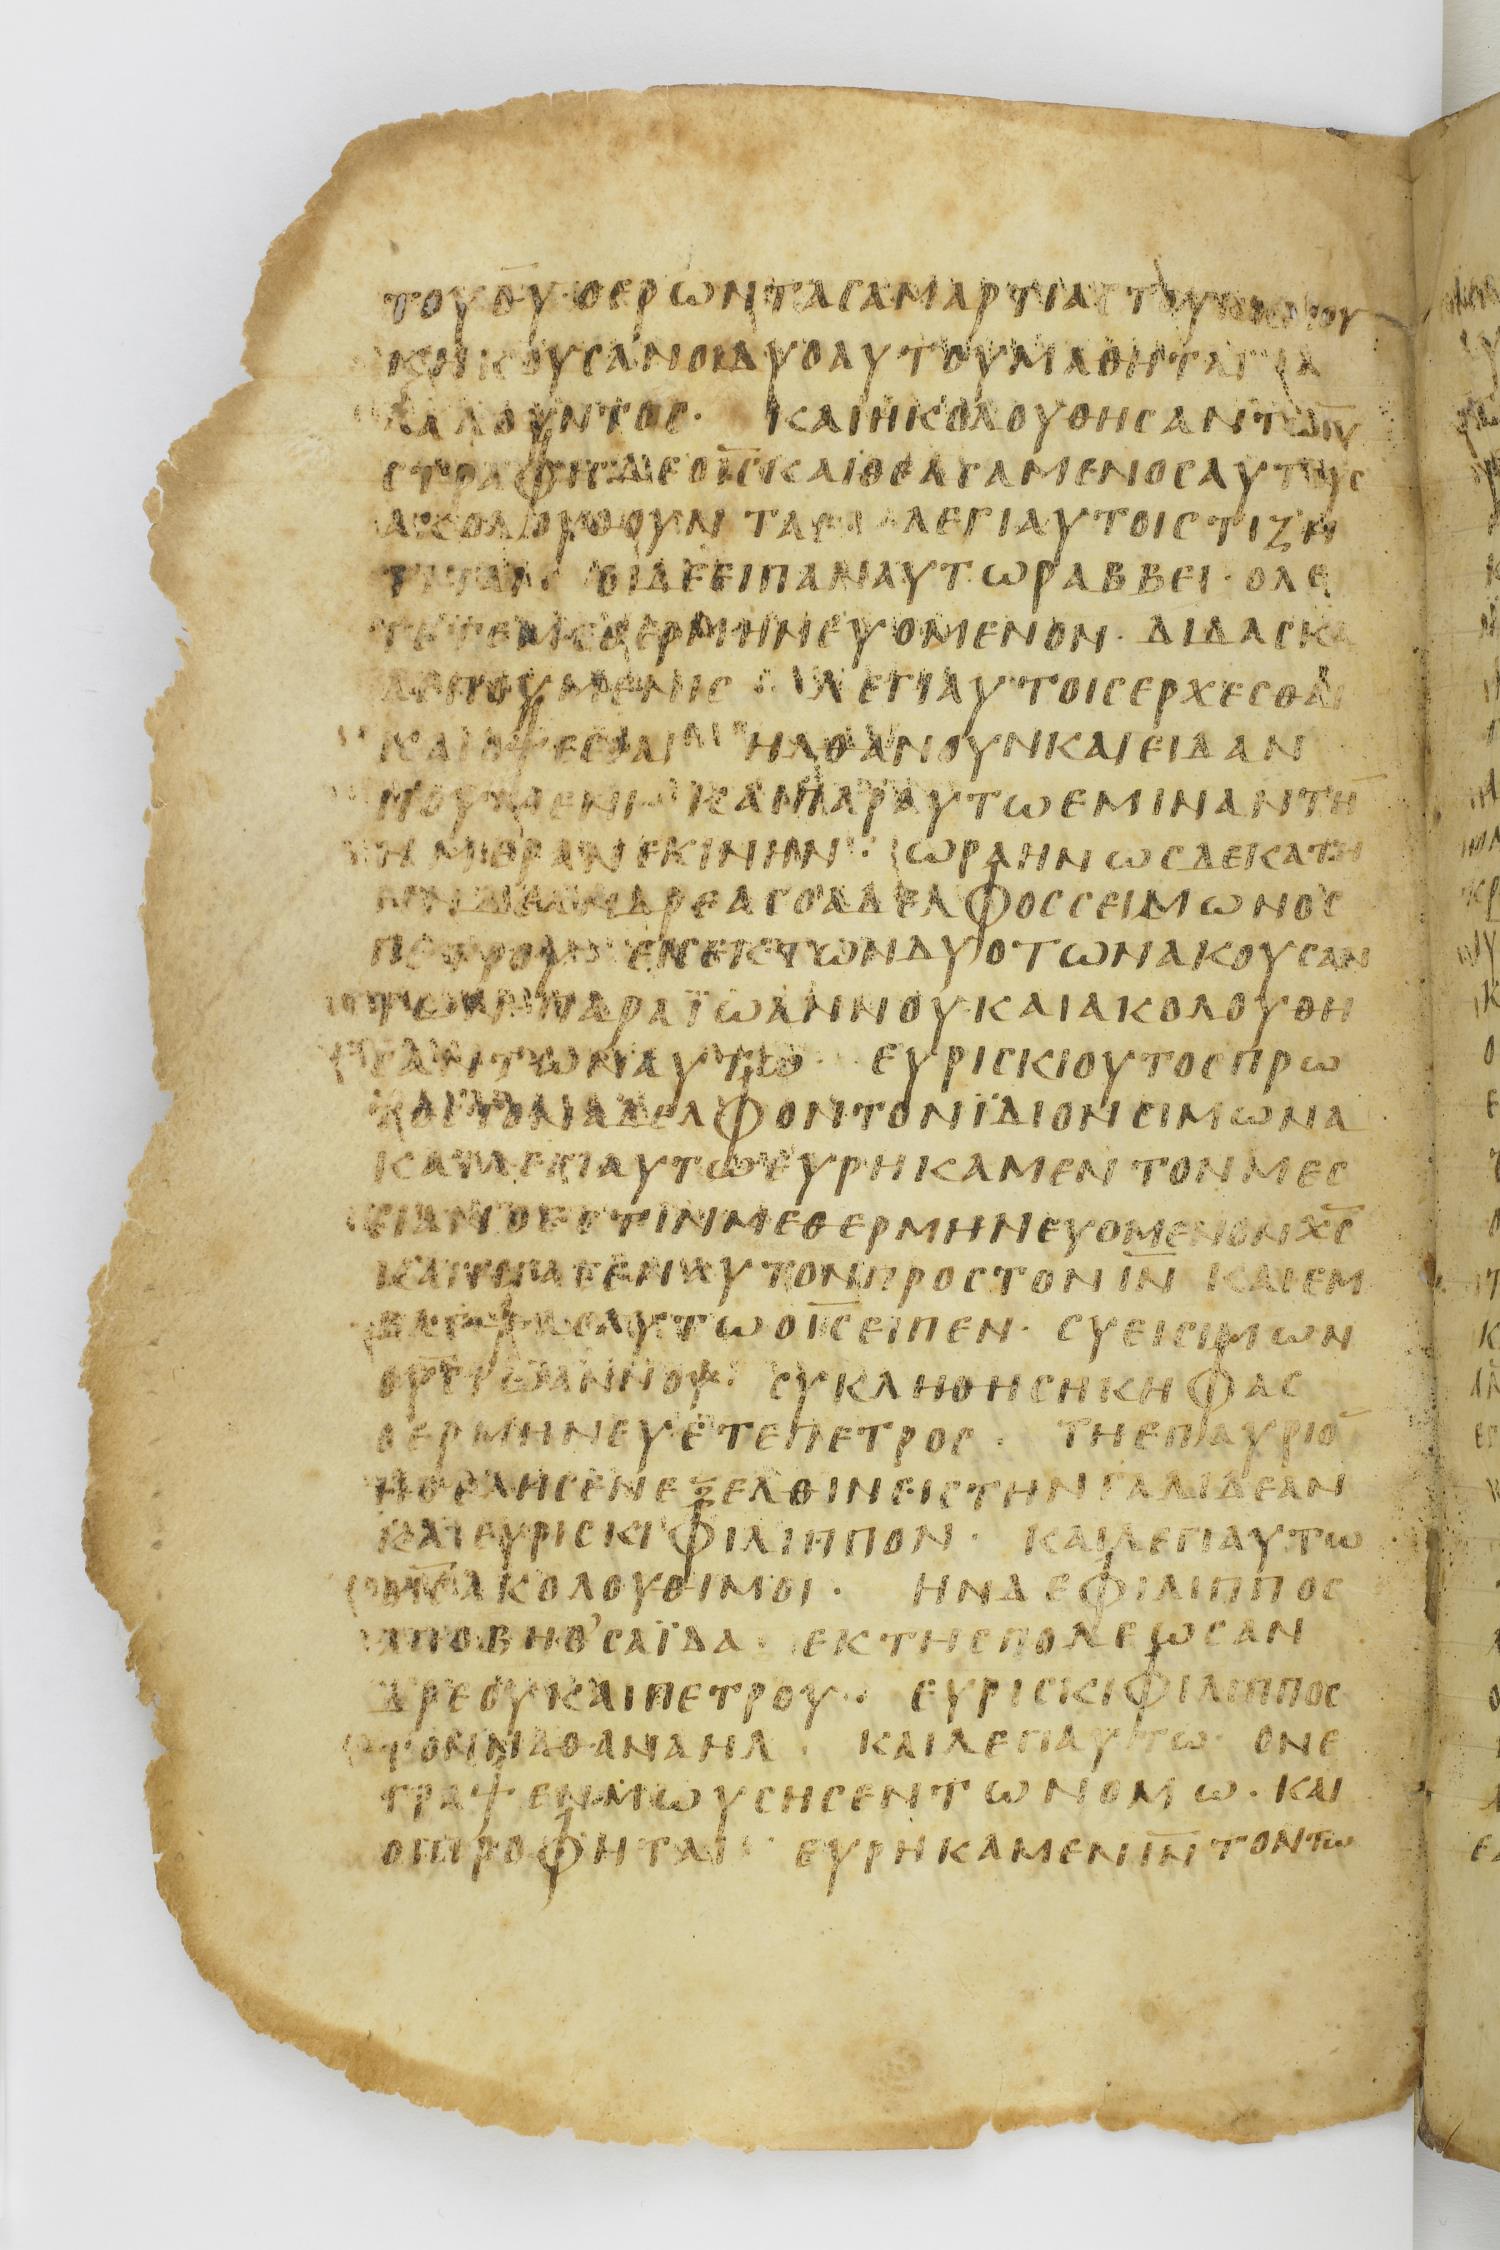 ΤΟΥΘ̅Υ̅·ΟΕΡΩΝΤΑCΑΜΑΡΤΙΑCΤΟΥ
ΚΗΚΟΥCΑΝΟΙΔΥΟΑΥΤΟΥΜΑΘΗΤΑΙ
ΛΑΛΟΥΝΤΟC· ΚΑΙΗΚΟΛΟΥΘΗCΑΝΤΩΙ̅Υ̅
CΤΡΑΦΙCΔΕΟΙ̅C̅ΚΑΙΘΕΑCΑΜΕΝΟCΑΥΤΟΥC
ΑΚΟΛΟΥΘΟΥΝΤΑC ΛΕΓΙΑΥΤΟΙCΤΙΖΗ
ΤΙΤΑΙ· ΟΙΔΕΕΙΠΑΝΑΥΤΩΡΑΒΒΕΙ·ΟΛΕ
ΓΕΤΕΜΕΘΕΡΜΗΝΕΥΟΜΕΝΟΝ·ΔΙΔΑCΚΑ
ΛΕΠΟΥΜΕΝΙC· ΛΕΓΙΑΥΤΟΙCΕΡΧΕCΘΑΙ
ΚΑΙΟΨΕCΘΑΙ ΗΛΘΑΝΟΥΝΚΑΙΕΙΔΑΝ
ΠΟΥΜΕΝΙ ΚΑΙΠΑΡΑΥΤΩΕΜΙΝΑΝΤΗ̅
ΗΜΕΡΑΝΕΚΙΝΗΝ· ΩΡΑΗΝΩCΔΕΚΑΤΗ
ΗΝΔΕΑΝΔΡΕΑCΟΑΔΕΛΦΟCCΕΙΜΩΝΟC
ΠΕΤΡΟΥ ΕΙCΕΚΤΩΝΔΥΟΤΩΝΑΚΟΥCΑΝ
ΤΩΝΠΑΡΑΪΩΑΝΝΟΥΚΑΙΑΚΟΛΟΥΘΗ
CΑΝΤΩΝΑΥΤΩ· ΕΥΡΙCΚΙΟΥΤΟCΠΡΩ
ΤΟCΤΟΝΑΔΕΛΦΟΝΤΟΝΪΔΙΟΝCΙΜΩΝΑ
ΚΑΙΛΕΓΙΑΥΤΩΕΥΡΗΚΑΜΕΝΤΟΝΜΕC
CΙΑΝΟΕCΤΙΝΜΕΘΕΡΜΗΝΕΥΟΜΕΝΟΝΧ̅C̅
ΚΑΙΗΓΑΓΕΝΑΥΤΟΝΠΡΟCΤΟΝΙ̅Ν̅ ΚΑΙΕΜ
ΒΛΕΨΑCΑΥΤΩΟΙ̅C̅ΕΙΠΕΝ· CΥΕΙCΙΜΩΝ
ΟΥ̅C̅ΪΩΑΝΝΟΥ· CΥΚΛΗΘΗCΗΚΗΦΑC
ΟΕΡΜΗΝΕΥΕΤΕΠΕΤΡΟC· ΤΗΕΠΑΥΡΙΟ̅
ΗΘΕΛΗCΕΝΕΞΕΛΘΙΝΕΙCΤΗΝΓΑΛΙΛΕΑΝ
ΚΑΙΕΥΡΙCΚΙΦΙΛΙΠΠΟΝ· ΚΑΙΛΕΓΙΑΥΤΩ
ΟΙ̅C̅ΑΚΟΛΟΥΘΙΜΟΙ· ΗΝΔΕΦΙΛΙΠΠΟC
ΑΠΟΒΗΘ’CΑΪΔΑ· ΕΚΤΗCΠΟΛΕΩCΑΝ
ΔΡΕΟΥΚΑΙΠΕΤΡΟΥ· ΕΥΡΙCΚΙΦΙΛΙΠΠΟC
ΤΟΝΝΑΘΑΝΑΗΛ· ΚΑΙΛΕΓΙΑΥΤΩ· ΟΝΕ
ΓΡΑΨΕΝΜΩΥCΗCΕΝΤΩΝΟΜΩ·ΚΑΙ
ΟΙΠΡΟΦΗΤΑΙ· ΕΥΡΗΚΑΜΕΝΙ̅Ν̅ΤΟΝΤΩ